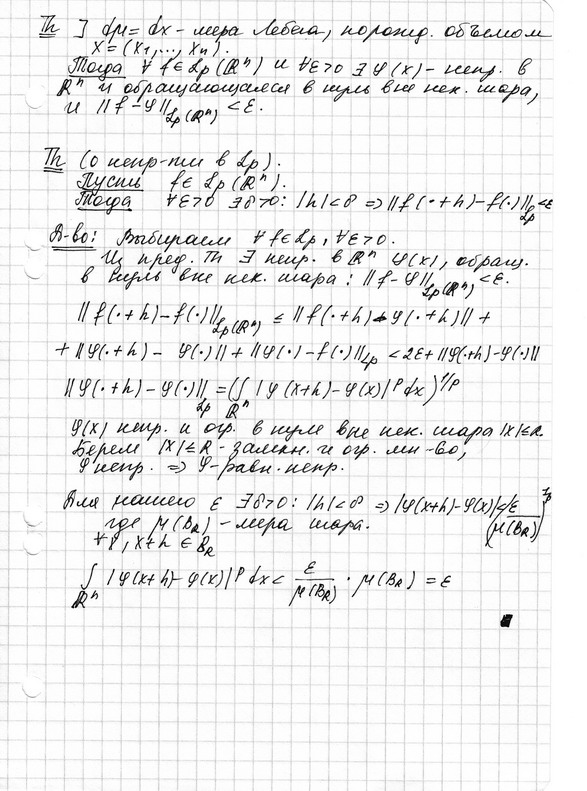 Th ] dμ = dx - мера Лебега, порожд. объемом
X = (x₁, ..., xₙ).
Тогда ∀ f ∈ Lp(ℝⁿ) и ∀ε>0 ∃ φ(x) - непр. в
ℝⁿ и обращающаяся в нуль вне нек. шара,
и ||f - φ||_{Lp(ℝⁿ)} < ε.
Th (о непр-ти в Lp).
Пусть f ∈ Lp(ℝⁿ).
Тогда ∀ε>0 ∃δ>0: |h|<δ ⇒ ||f(·+h) - f(·)||_{Lp} < ε
Д-во: Выбираем ∀ f ∈ Lp, ∀ε>0.
Из пред. Th ∃ непр. в ℝⁿ φ(x), обращ.
в нуль вне нек. шара: ||f - φ||_{Lp(ℝⁿ)} < ε.
||f(·+h) - f(·)||_{Lp(ℝⁿ)} ≤ ||f(·+h) - φ(·+h)|| +
+ ||φ(·+h) - φ(·)|| + ||φ(·) - f(·)||_{Lp} < 2ε + ||φ(·+h) - φ(·)||
||φ(·+h) - φ(·)||_{Lp} = (∫_{ℝⁿ} |φ(x+h) - φ(x)|^p dx)^{1/p}
φ(x) непр. и огр. в нуле вне нек. шара |x| ≤ R.
Берем |x| ≤ R - замкн. и огр. мн-во,
φ непр. ⇒ φ - равн. непр.
Для нашего ε ∃δ>0: |h|<δ ⇒ |φ(x+h) - φ(x)| < (ε/μ(B_R))^{1/p}
где μ(B_R) - мера шара.
∀ x, x+h ∈ B_R
∫_{ℝⁿ} |φ(x+h) - φ(x)|^p dx < ε/μ(B_R) · μ(B_R) = ε